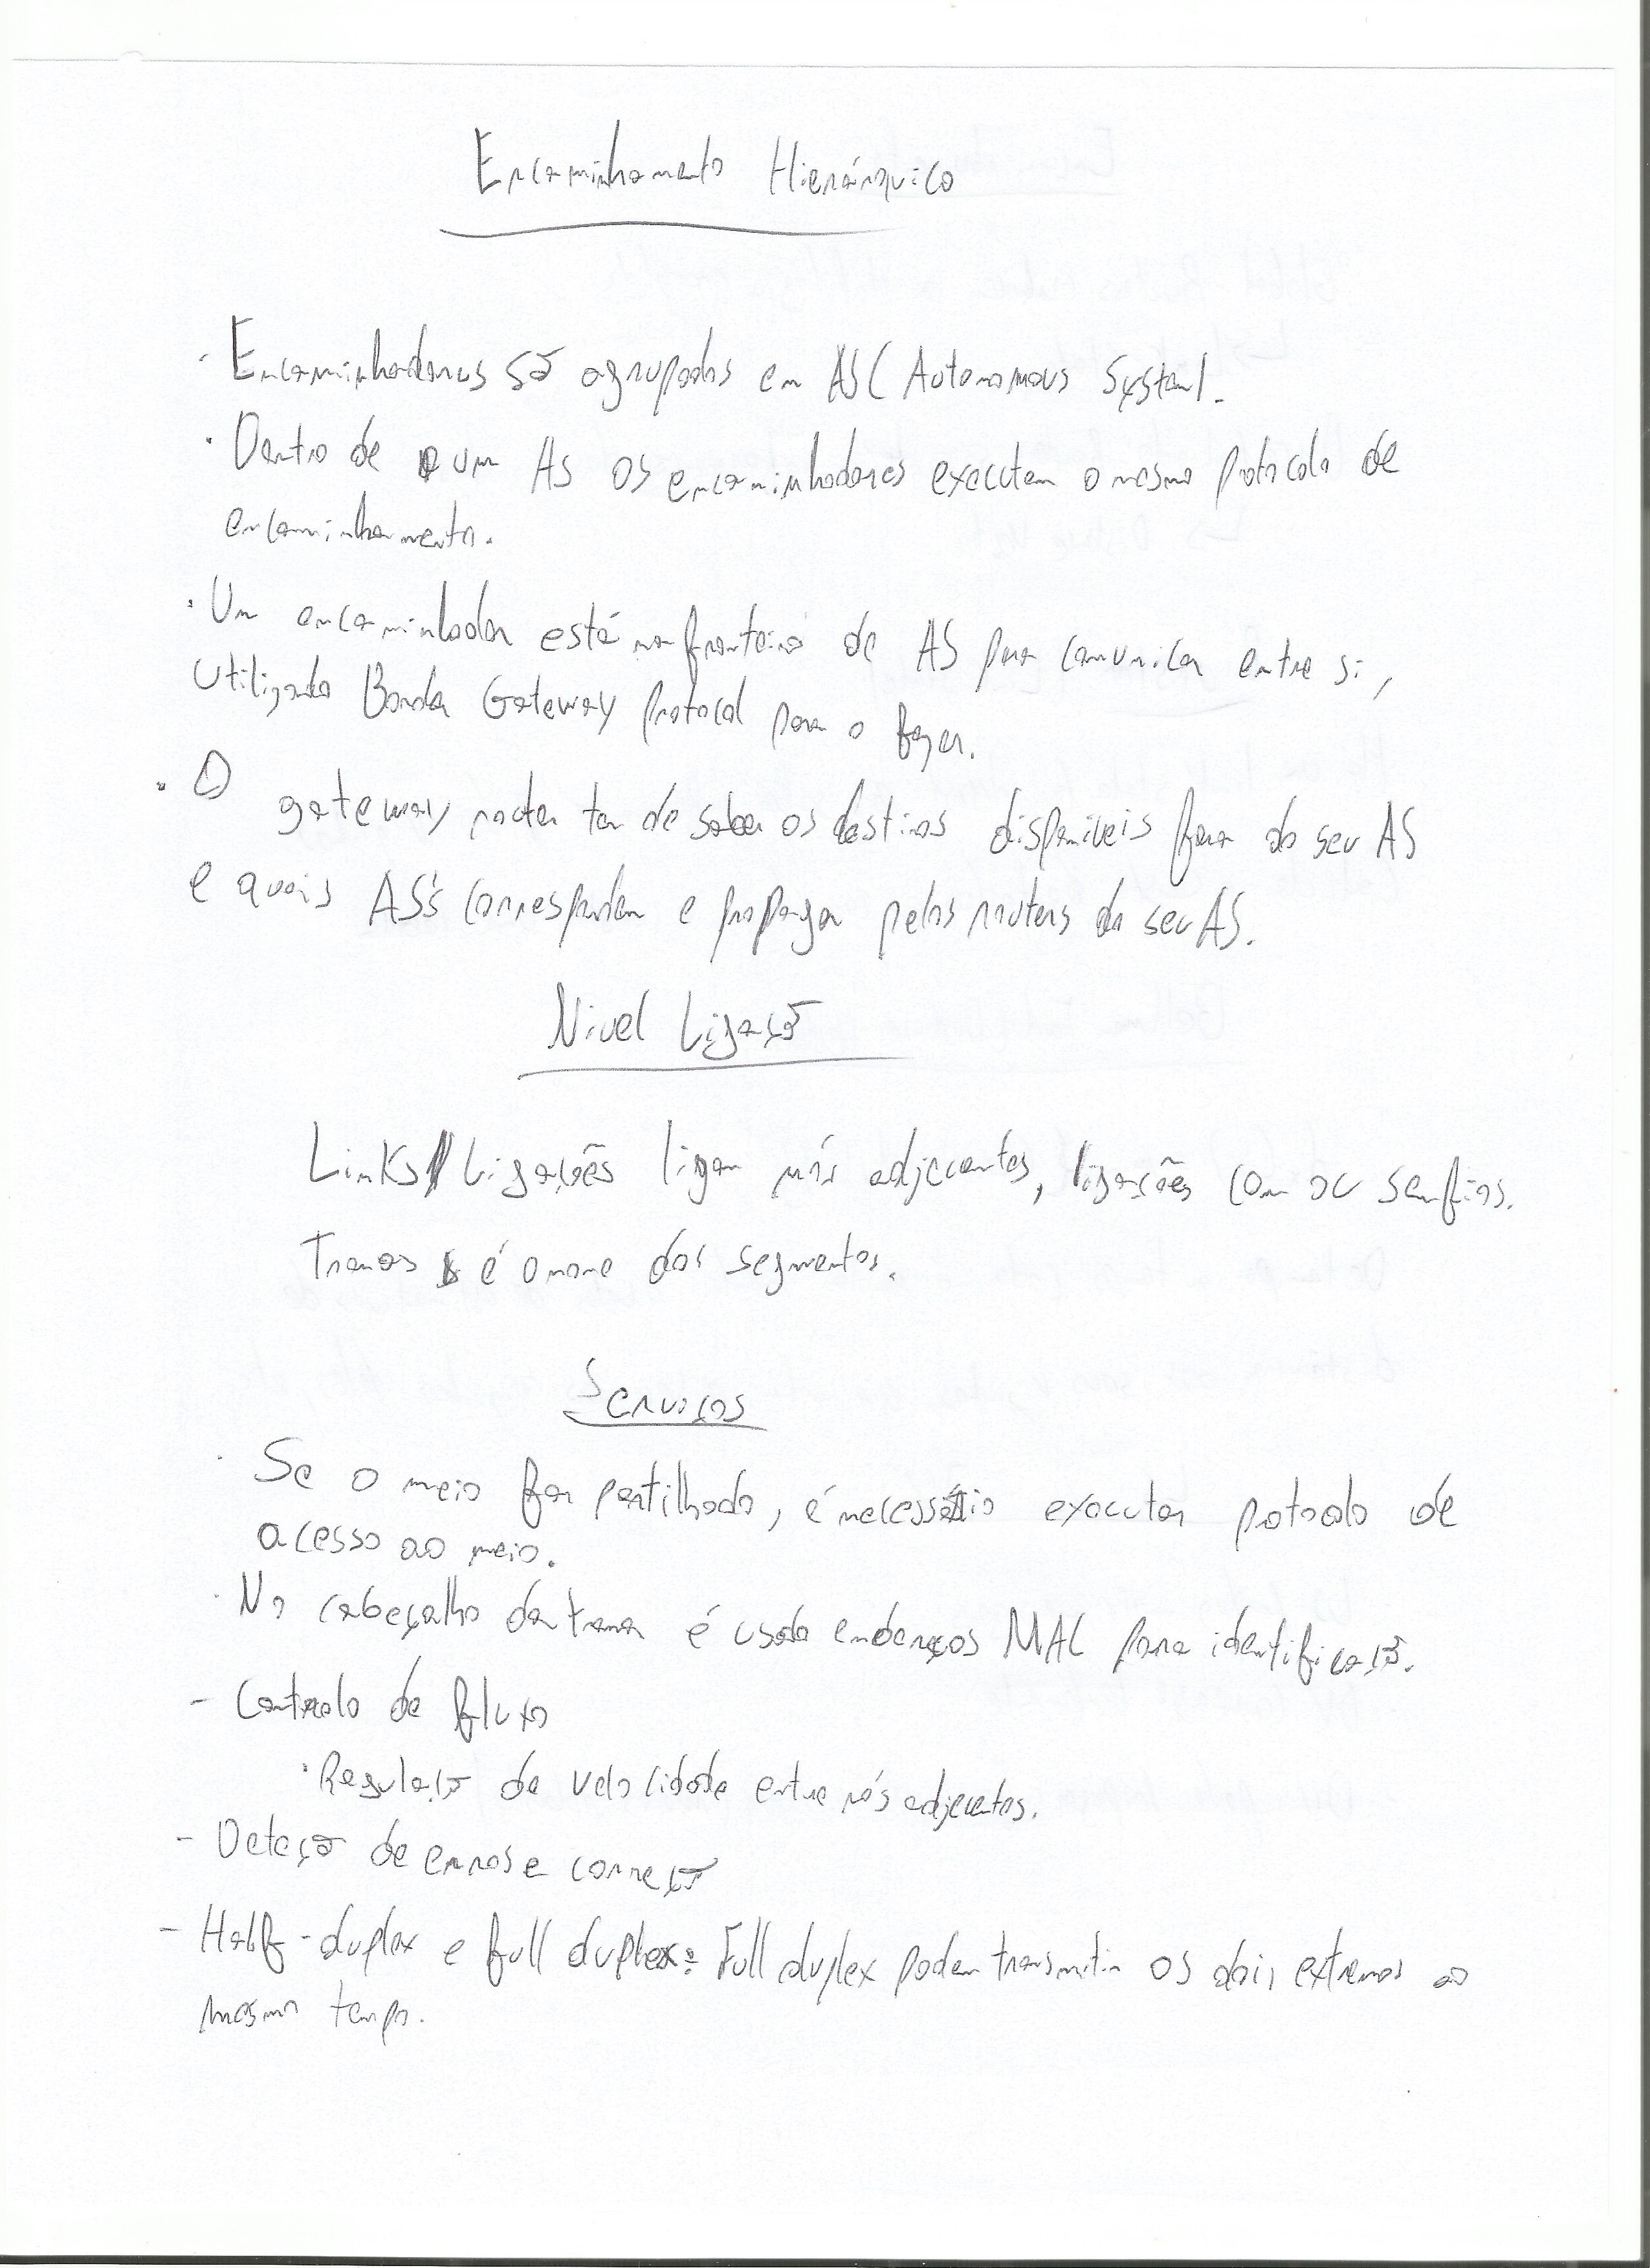 Encaminhamento Hierárquico
· Encaminhadores são agrupados em AS (Autonomous System).
· Dentro de um AS os encaminhadores executam o mesmo protocolo de
encaminhamento.
· Um encaminhador está na fronteira de AS para comunicar entre si,
utilizando Border Gateway Protocol para o fazer.
· O gateway router tem de saber os destinos disponíveis fora do seu AS
e quais AS's correspondem e propagar pelos routers do seu AS.
Nivel Ligação
Links/Ligações ligam nós adjacentes, ligações com ou sem fios.
Tramas é o nome dos segmentos.
Serviços
· Se o meio for partilhado, é necessário executar protocolo de
acesso ao meio.
· No cabeçalho da trama é usado endereços MAC para identificação.
- Controlo de fluxo
· Regulação de velocidade entre nós adjacentes.
- Deteção de erros e correção
- Half-duplex e full duplex: Full duplex podem transmitir os dois extremos ao
mesmo tempo.